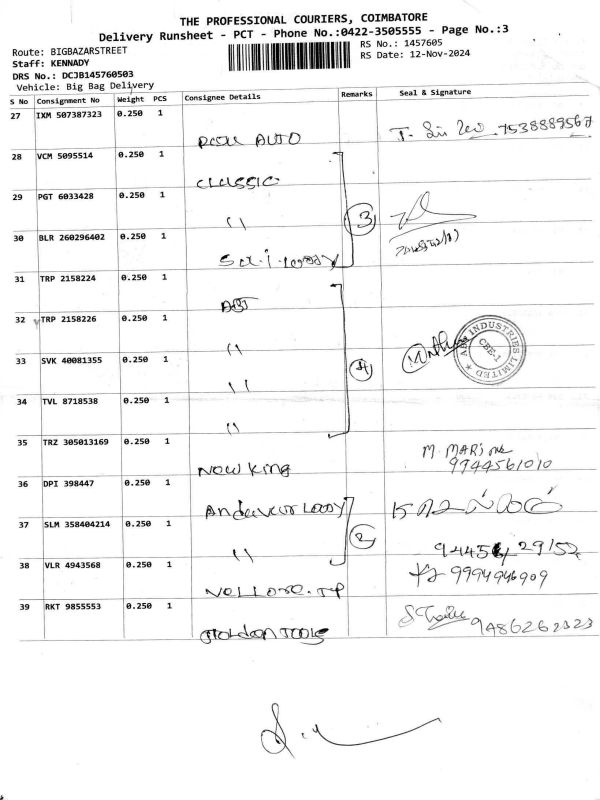 THE PROFESSIONAL COURIERS, COIMBATORE
Delivery Runsheet - PCT - Phone No.:0422-3505555 - Page No.:3
Route: BIGBAZARSTREET
RS No.: 1457605
Staff: KENNADY
RS Date: 12-Nov-2024
DRS No.: DCJB145760503
Vehicle: Big Bag Delivery
S No Consignment No Weight PCS Consignee Details Remarks Seal & Signature
27 IXM 507387323 0.250 1
AUTO 7538889567
28 VCM 5095514 0.250 1
classic
29 PGT 6033428 0.250 1
" 3
30 BLR 260296402 0.250 1
31 TRP 2158224 0.250 1
ABT
32 TRP 2158226 0.250 1
"
ABT INDUSTRIES LIMITED
CBE-1
33 SVK 40081355 0.250 1
" 4
34 TVL 8718538 0.250 1
"
35 TRZ 305013169 0.250 1
M. MARI
Now King 9944561010
36 DPI 398447 0.250 1
37 SLM 358404214 0.250 1
" 2
38 VLR 4943568 0.250 1
9994946909
39 RKT 9855553 0.250 1
Goldon Tools 9486262323